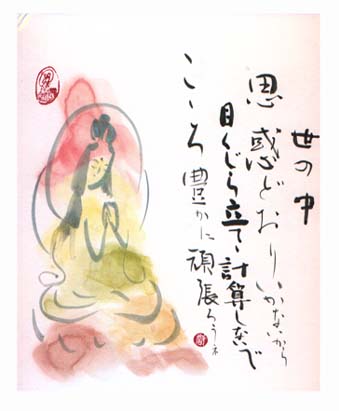 世の中
思惑どおりいかないから
目くじら立て計算しないで
こころ豊かに頑張ろうネ